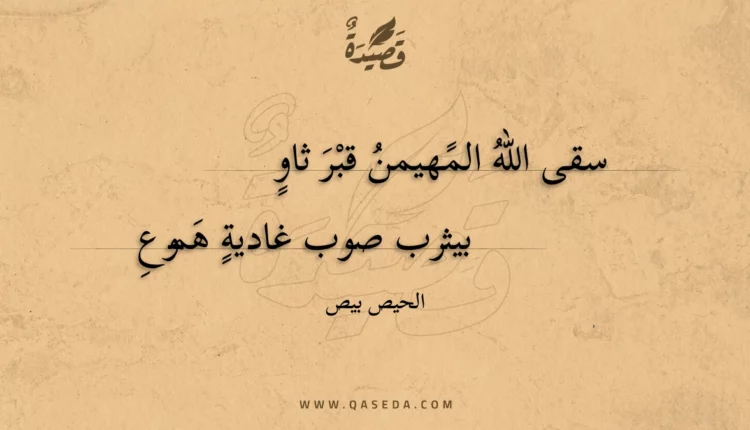 قَصِيْدَةٌ
سقى اللهُ المًهيمنُ قبْرَ ثاوٍ
بيثرب صوب غاديةٍ هَموعِ
الحيص بيص
WWW.QASEDA.COM